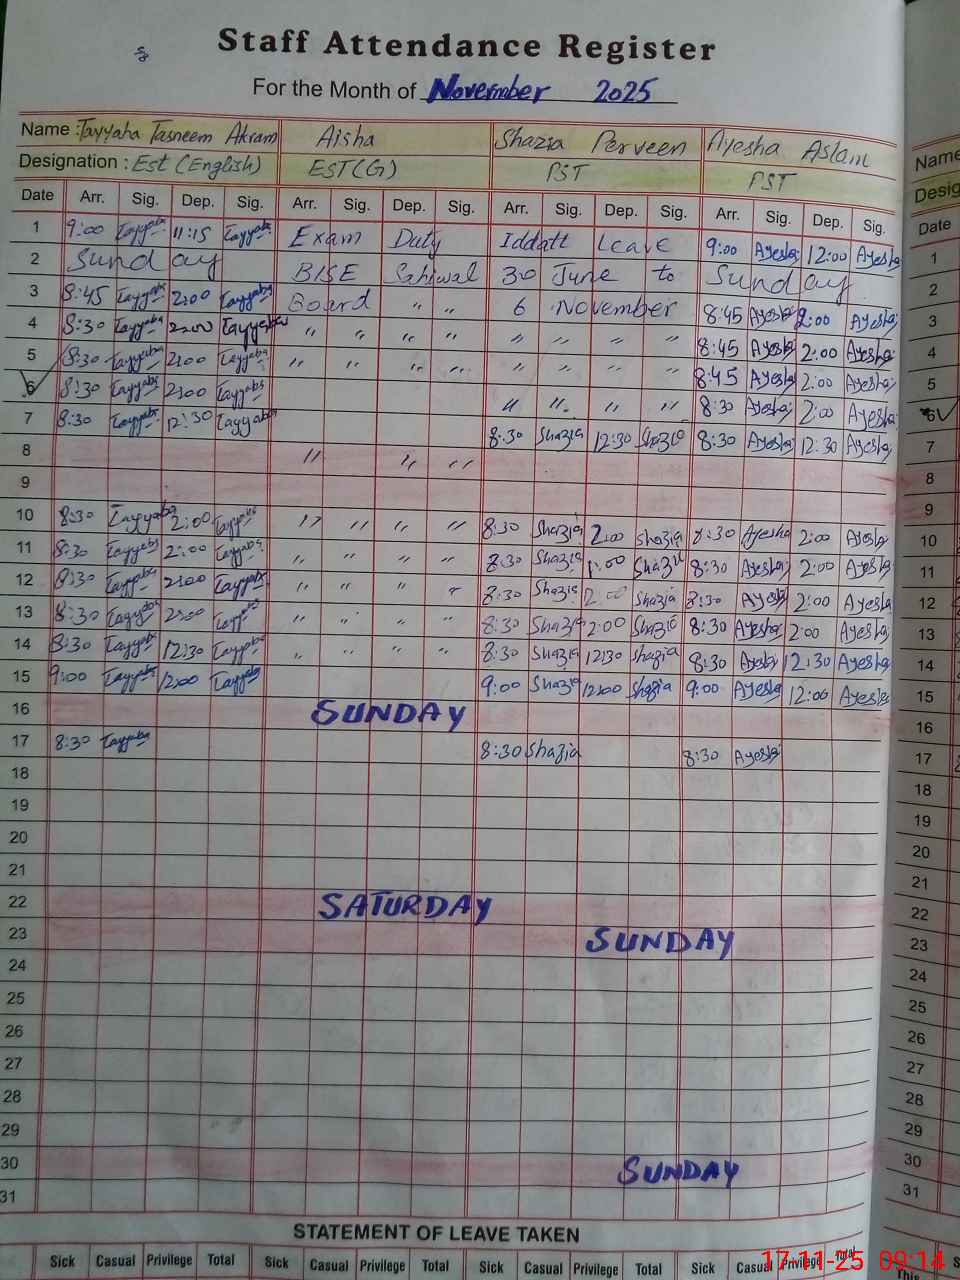 Staff Attendance Register
For the Month of November 2025
Name : Tayyaba Tasneem Akram Aisha Shazia Perveen Ayesha Aslam Name
Designation : Est (English) EST (G) PST PST Desig
Date Arr. Sig. Dep. Sig. Arr. Sig. Dep. Sig. Arr. Sig. Dep. Sig. Arr. Sig. Dep. Sig. Date
1 9:00 Tayyaba 11:15 Tayyaba Exam Duty Iddatt Leave 9:00 Ayesha 12:00 Ayesha 1
2 Sunday BISE Sahiwal 30 June to Sunday 2
3 8:45 Tayyaba 2:00 Tayyaba Board " " 6 November 8:45 Ayesha 2:00 Ayesha 3
4 8:30 Tayyaba 2:00 Tayyaba " " " " " " " " 8:45 Ayesha 2:00 Ayesha 4
5 8:30 Tayyaba 2:00 Tayyaba " " " " " " " " 8:45 Ayesha 2:00 Ayesha 5
6 8:30 Tayyaba 2:00 Tayyaba " " " " 8:30 Ayesha 2:00 Ayesha 6
7 8:30 Tayyaba 12:30 Tayyaba 8:30 Shazia 12:30 Shazia 8:30 Ayesha 12:30 Ayesha 7
8 " " " 8
9 9
10 8:30 Tayyaba 2:00 Tayyaba " " " " 8:30 Shazia 2:00 Shazia 8:30 Ayesha 2:00 Ayesha 10
11 8:30 Tayyaba 2:00 Tayyaba " " " " 8:30 Shazia 1:00 Shazia 8:30 Ayesha 2:00 Ayesha 11
12 8:30 Tayyaba 2:00 Tayyaba " " " " 8:30 Shazia 2:00 Shazia 8:30 Ayesha 2:00 Ayesha 12
13 8:30 Tayyaba 2:00 Tayyaba " " " " 8:30 Shazia 2:00 Shazia 8:30 Ayesha 2:00 Ayesha 13
14 8:30 Tayyaba 12:30 Tayyaba " " " " 8:30 Shazia 12:30 Shazia 8:30 Ayesha 12:30 Ayesha 14
15 9:00 Tayyaba 12:00 Tayyaba 9:00 Shazia 12:00 Shazia 9:00 Ayesha 12:00 Ayesha 15
16 SUNDAY 16
17 8:30 Tayyaba 8:30 Shazia 8:30 Ayesha 17
18 18
19 19
20 20
21 21
22 SATURDAY 22
23 SUNDAY 23
24 24
25 25
26 26
27 27
28 28
29 29
30 SUNDAY 30
31 31
STATEMENT OF LEAVE TAKEN
Sick Casual Privilege Total Sick Casual Privilege Total Sick Casual Privilege Total Sick Casual Privilege Total
17-11-25 09:14